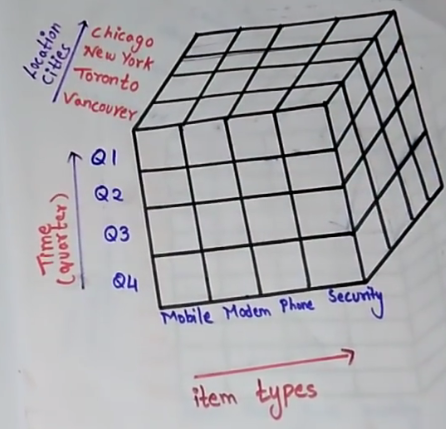 Location
Cities
Chicago
New York
Toronto
Vancouver
Time
(quarter)
Q1
Q2
Q3
Q4
Mobile Modem Phone Security
item types